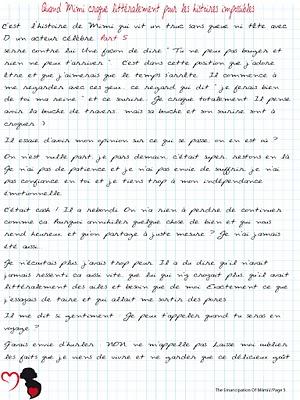 Quand Mimi craque littéralement pour les histoires impossibles
C'est l'histoire de Mimi qui vit un truc sans queue ni tête avec
D un acteur célèbre Part 5
serre contre lui. Une façon de dire " Tu ne peux pas bouger et
rien ne peut t'arriver ". C'est dans cette position que j'adore
être et que j'aimerais que le temps s'arrête. Il commence à
me regarder avec ces yeux, ce regard qui dit " je ferais bien
de toi ma reine " et ce sourire. Je craque totalement. Il pense
avoir la bouche de travers, mais sa bouche et son sourire sont à
croquer !
Il essaie d'avoir mon opinion sur ce qui se passe, on en est où ?
On n'est nulle part, je pars demain, c'était super, restons en là.
Je n'ai pas de patience et je n'ai pas envie de souffrir, je n'ai
pas confiance en toi et je tiens trop à mon indépendance
émotionnelle.
C'était cash ! Il a rebondi. On n'a rien à perdre de continuer
comme ça. Pourquoi annihiler quelque chose de bien et qui nous
rend heureux et qu'on partage à juste mesure ? Je n'ai jamais
été aussi...
Je n'écoutais plus, j'avais trop peur. Il a du dire qu'il n'avait
jamais ressenti ça aussi vite, que lui qui n'y croyait plus qu'il avait
littéralement des ailes et besoin que de moi. Exactement ce que
j'essayais de taire et qui allait me sortir des pores.
Il me dit si gentiment : Je peux t'appeler quand tu seras en
voyage ?
J'avais envie d'hurler : NON ne m'appelle pas. Laisse moi oublier
les faits que je viens de vivre et ne garder que ce délicieux goût
The Emancipation Of Mimi// Page 5